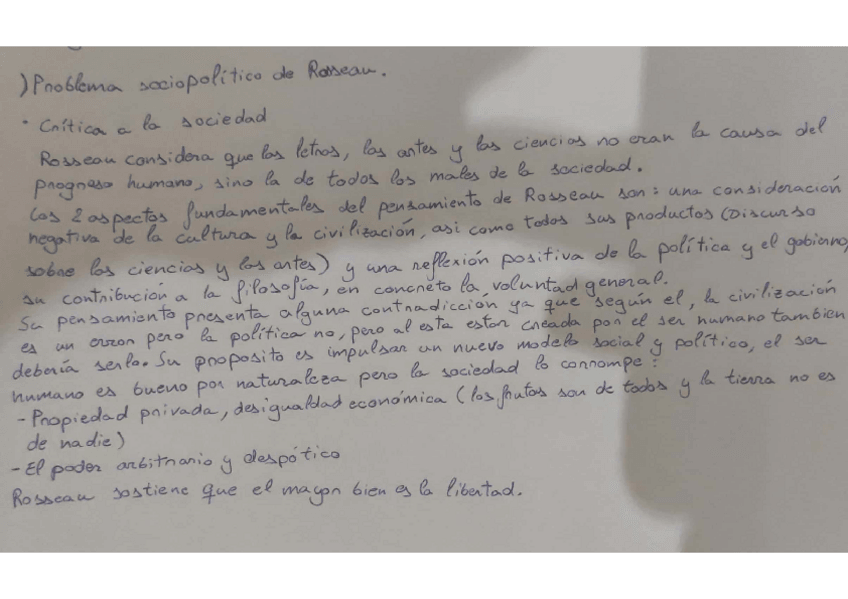 ) Problema sociopolítico de Rosseau.
· Crítica a la sociedad
Rosseau considera que las letras, las artes y las ciencias no eran la causa del
progreso humano, sino la de todos los males de la sociedad.
Los 2 aspectos fundamentales del pensamiento de Rosseau son: una consideración
negativa de la cultura y la civilización, asi como todos sus productos (Discurso
sobre las ciencias y las artes) y una reflexión positiva de la política y el gobierno,
su contribución a la filosofía, en concreto la voluntad general.
Su pensamiento presenta alguna contradicción ya que según el, la civilización
es un error pero la política no, pero al esta estar creada por el ser humano tambien
debería serlo. Su proposito es impulsar un nuevo modelo social y político, el ser
humano es bueno por naturaleza pero la sociedad lo corrompe:
- Propiedad privada, desigualdad económica (los frutos son de todos y la tierra no es
de nadie)
- El poder arbitrario y despótico
Rosseau sostiene que el mayor bien es la libertad.